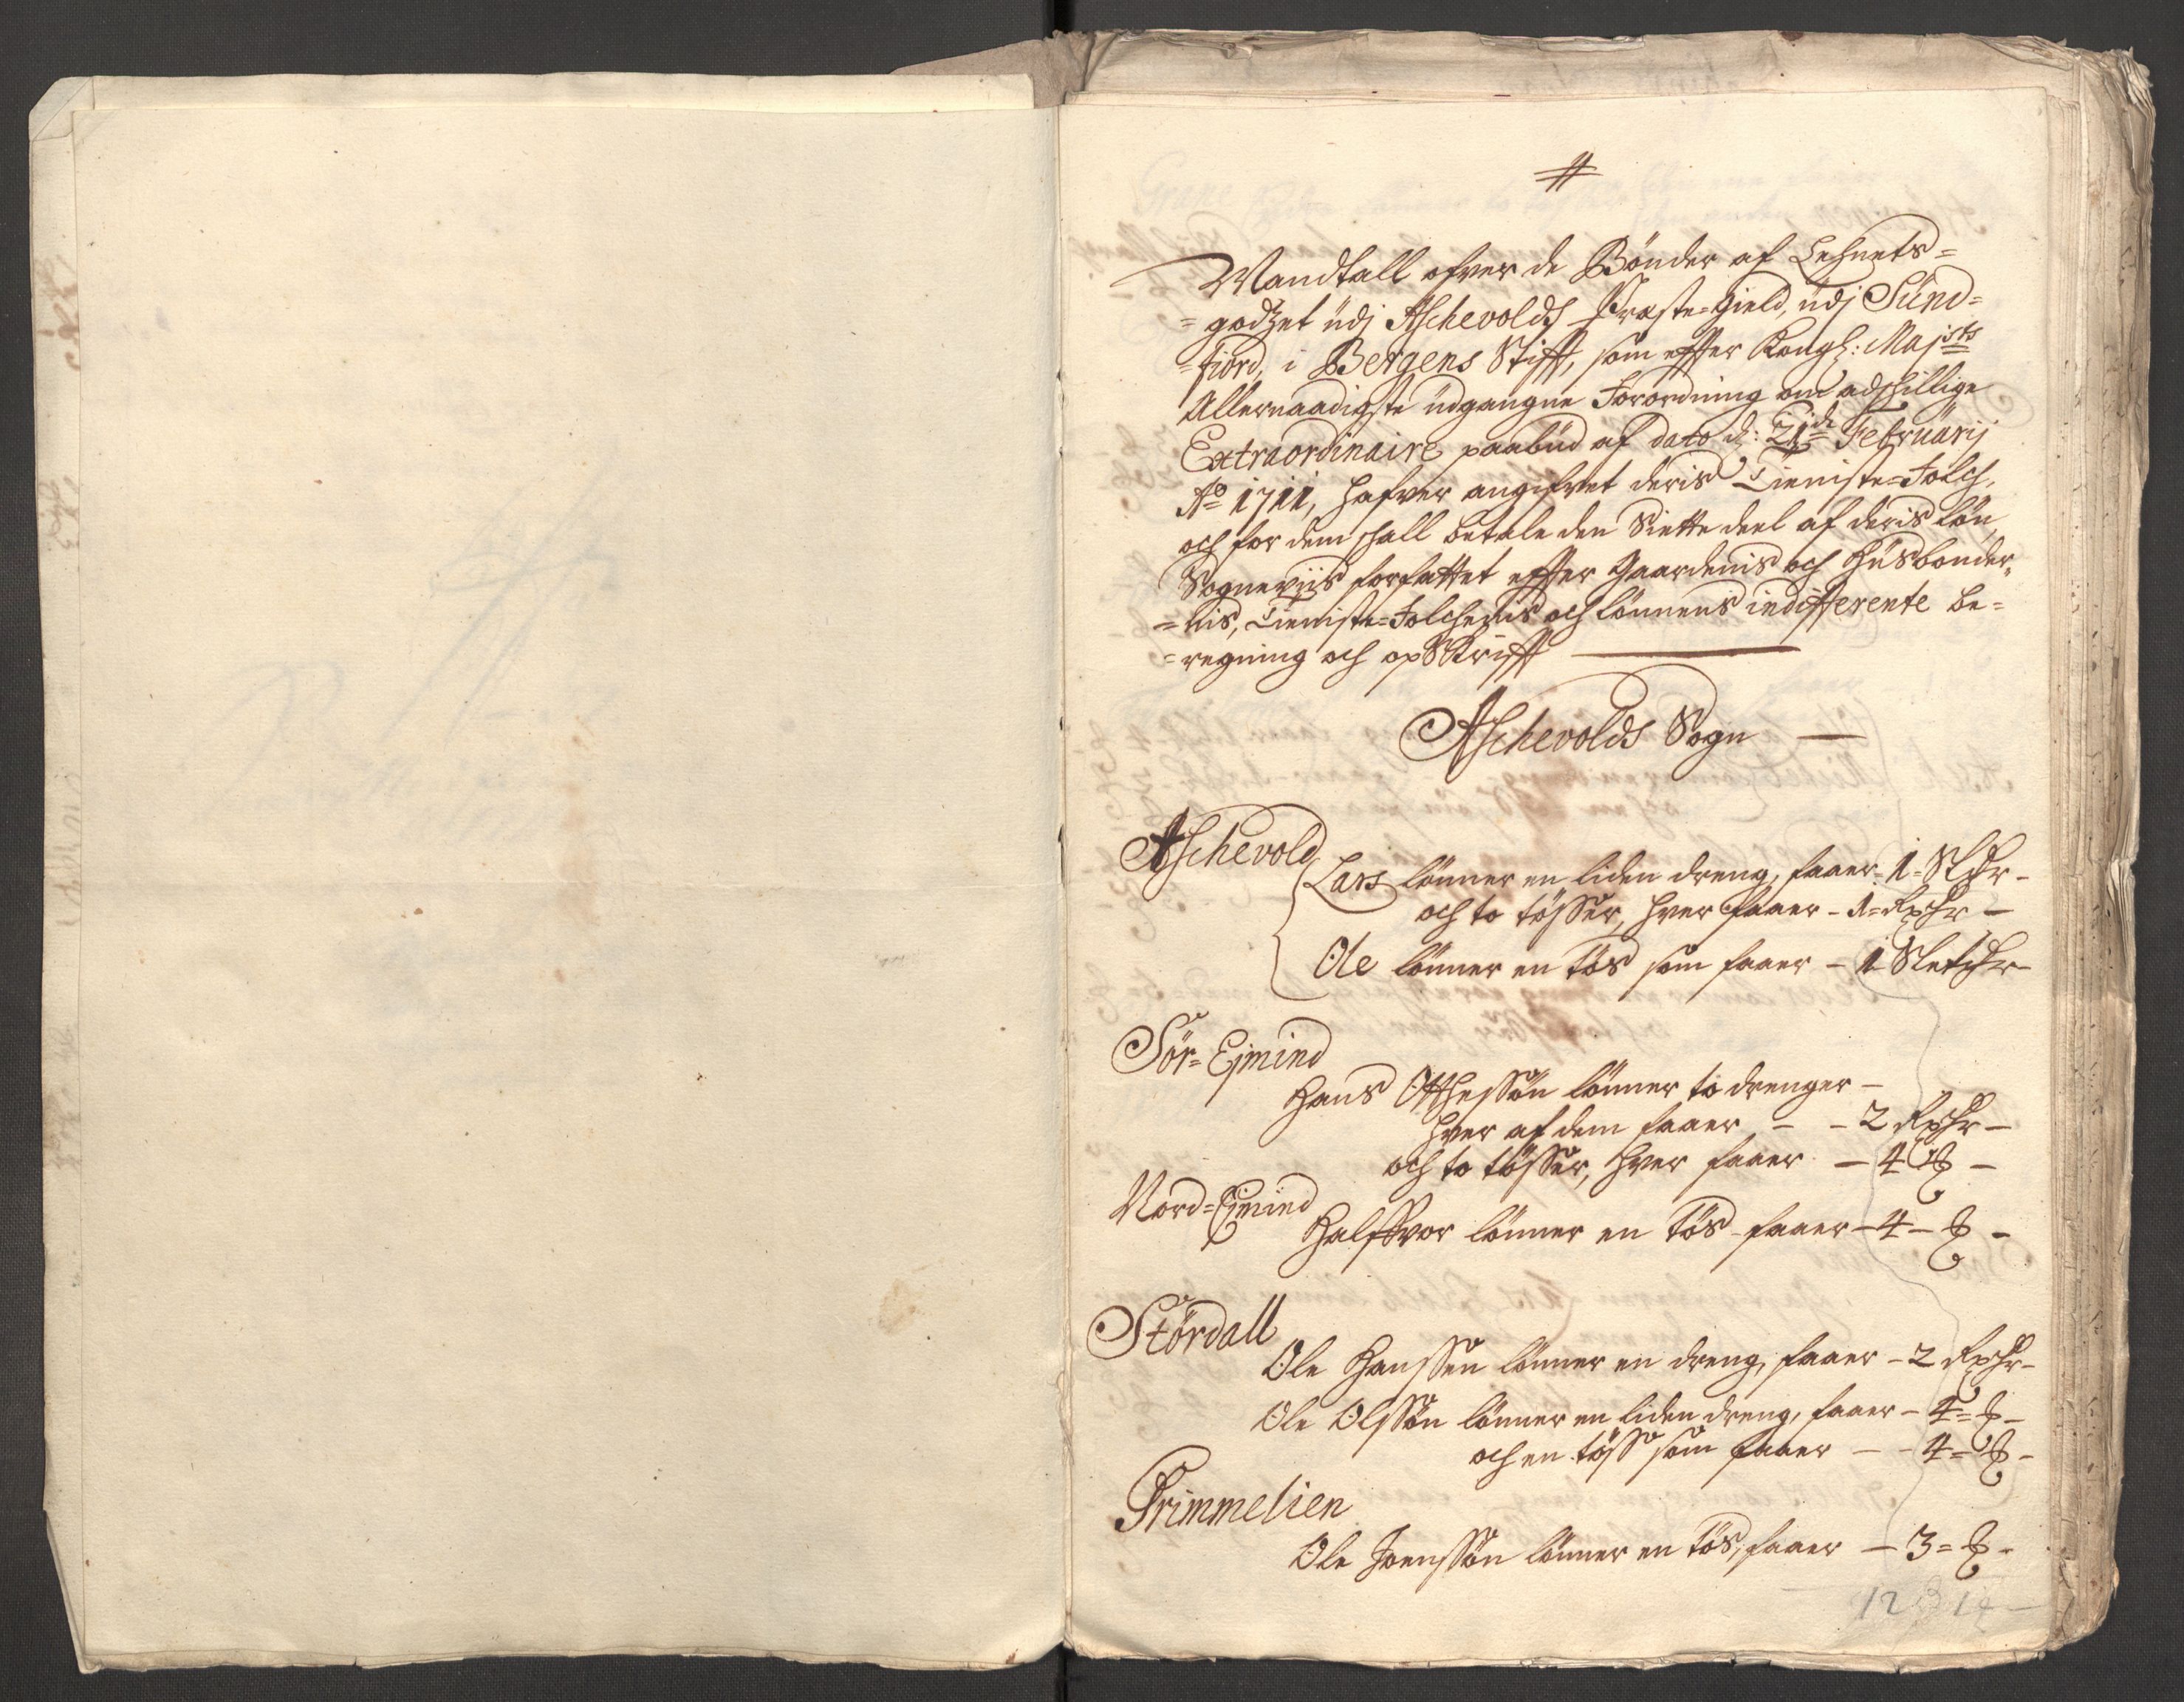 Mandtall ofver de Bönder af Lehnets=
=godzet udj Aschevolds Præste-Gield, udj Sünd=
=fiord, i Bergens Stifft, som effter Kongl: Majsts
Allernaadigste udgangne Forordning om adschillige
Extraordinaire paabud af dato d: 21de Februarij
Ao 1711, hafver angifvet deris Tieniste=Folch,
och for dem schall betale den Siette deel af deris Lön,
Sogneviis forfattet effter Gaardenis och Husbonder,,
=nis, Tieniste=Folchenis och Lönnens indifferente be=
=regning och opSkrifft
Aschevolds Sogn
Aschevold
Lars lönner en liden dreng, faaer = 1 = Sldr -
och to tösser, hver faaer - 1 = Rxdr -
Ole lönner en Tös som faaer - 1 Sletdr -
Sör= Ejmind
Hans Otthessön lönner to drenger -
hver af dem faaer - - 2 Rxdr -
och to tösser, hver faaer - 4 ß -
Nord=Ejmind
Halffvor lönner en Tös - faaer - 4 - ß -
Stördall
Ole Hanssen lönner en dreng, faaer - 2 Rxdr -
Ole Olssön lönner en liden dreng, faaer - 4 = ß -
och en töss som faaer - - 4 = ß -
Grimmelien
Ole Joenssön lönner en Tös, faaer - 3 = ß -